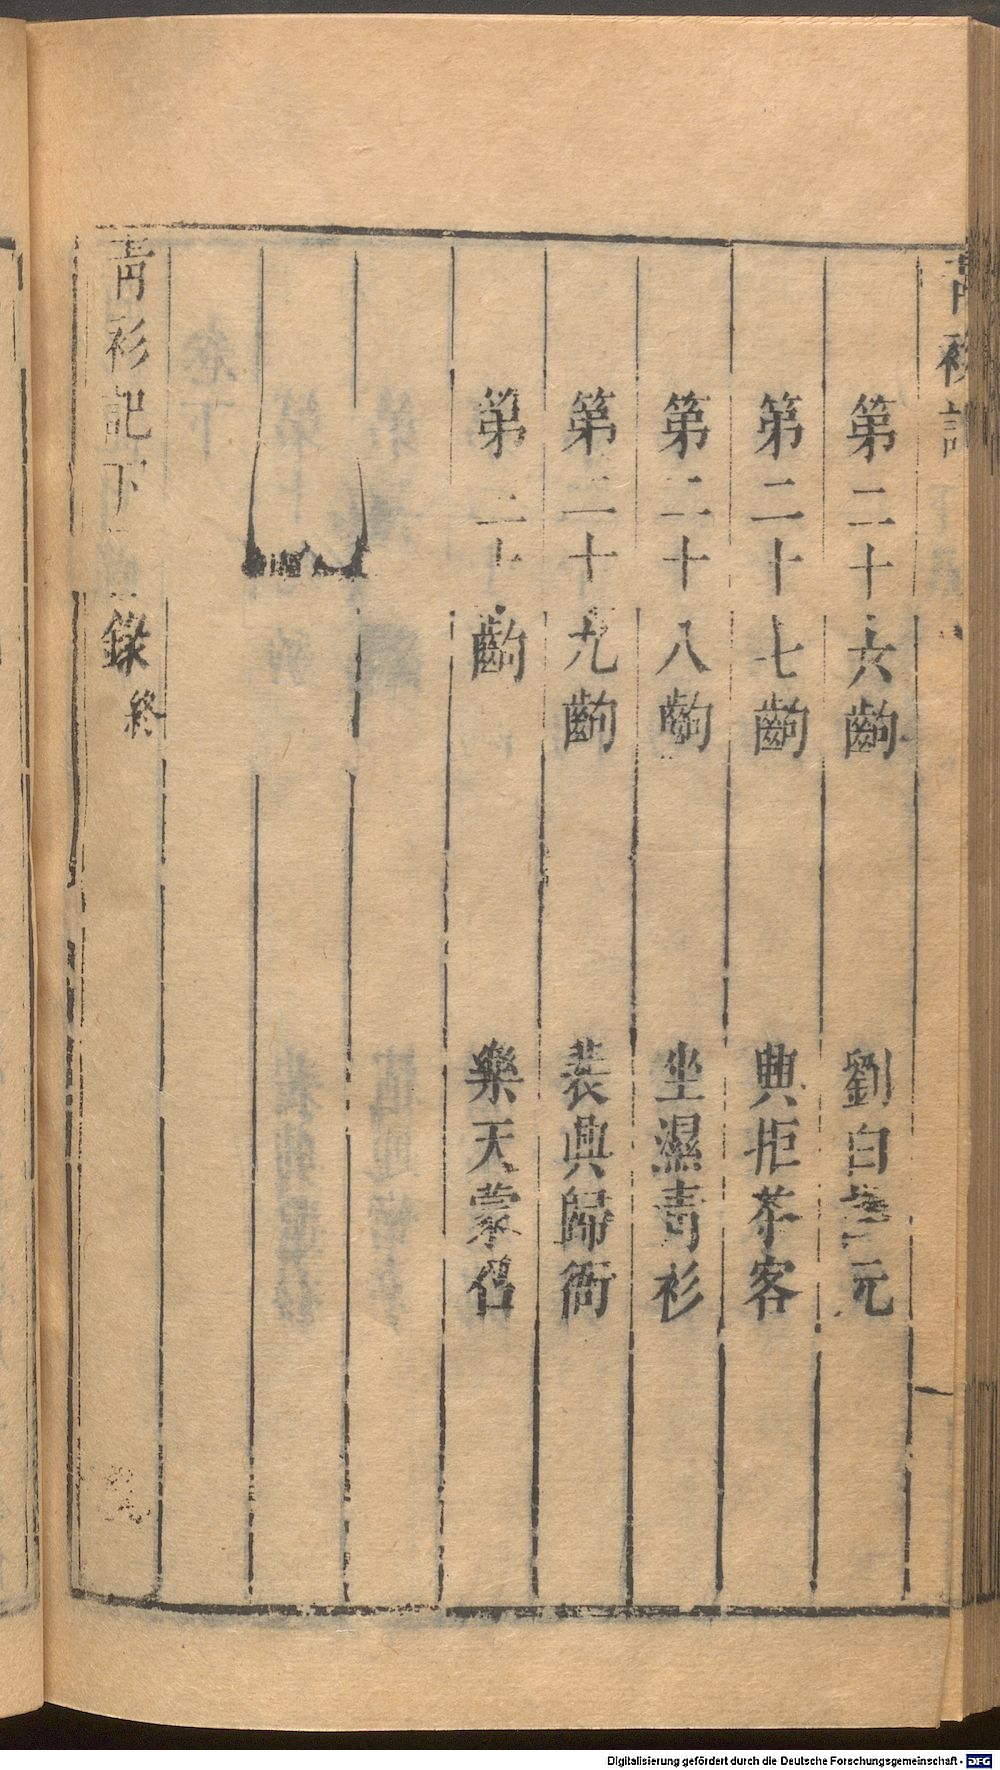 青衫記
第二十六齣 劉白 元
第二十七齣 興拒茶客
第二十八齣 坐濕青衫
第二十九齣 裴興歸衙
第 十齣 樂天蒙召
青衫記下 錄終
Digitalisierung gefördert durch die Deutsche Forschungsgemeinschaft - DFG